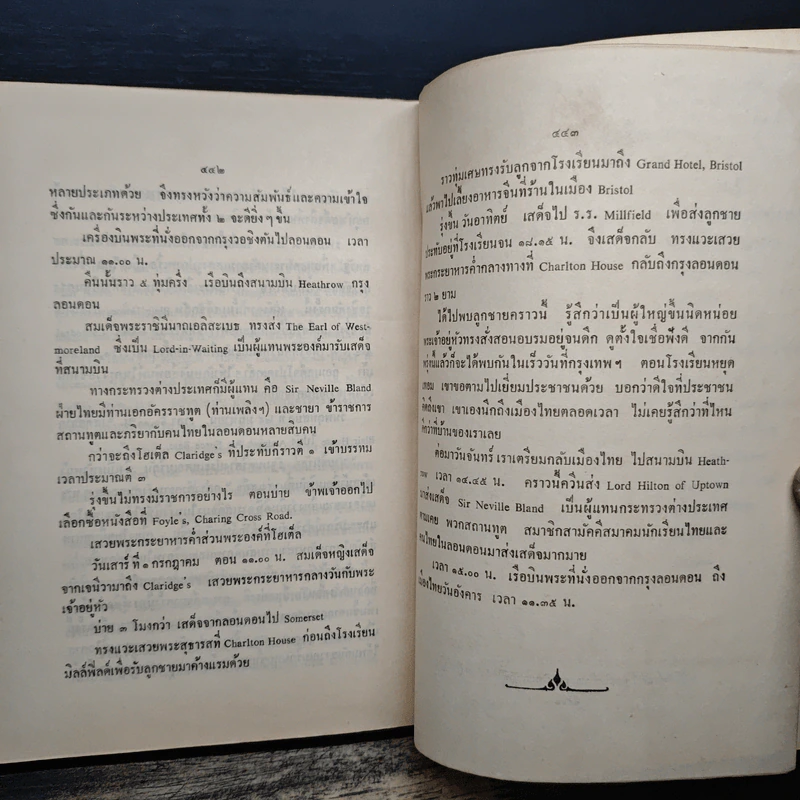 ๔๔๒
หลายประเภทด้วย จึงทรงหวังว่าความสัมพันธ์และความเข้าใจ
ซึ่งกันและกันระหว่างประเทศทั้ง ๒ จะดียิ่ง ๆ ขึ้น
เครื่องบินพระที่นั่งออกจากกรุงวอชิงตันไปลอนดอน เวลา
ประมาณ ๑๑.๐๐ น.
คืนนั้นราว ๕ ทุ่มครึ่ง เรือบินถึงสนามบิน Heathrow กรุง
ลอนดอน
สมเด็จพระราชินีนาถเอลิสะเบธ ทรงส่ง The Earl of West-
moreland ซึ่งเป็น Lord-in-Waiting เป็นผู้แทนพระองค์มารับเสด็จ
ที่สนามบิน
ทางกระทรวงต่างประเทศก็มีผู้แทน คือ Sir Neville Bland
ฝ่ายไทยมีท่านเอกอัครราชทูต (ท่านเพลิงฯ) และชายา ข้าราชการ
สถานทูตและภริยากับคนไทยในลอนดอนหลายสิบคน
กว่าจะถึงโฮเต็ล Claridge's ที่ประทับก็ราวตี ๑ เข้าบรรทม
เวลาประมาณตี ๓
รุ่งขึ้นไม่ทรงมีราชการอย่างไร ตอนบ่าย ข้าพเจ้าออกไป
เลือกซื้อหนังสือที่ Foyle's, Charing Cross Road.
เสวยพระกระยาหารค่ำส่วนพระองค์ที่โฮเต็ล
วันเสาร์ที่ ๑ กรกฎาคม ตอน ๑๑.๐๐ น. สมเด็จหญิงเสด็จ
จากเจนีวามาถึง Claridge's เสวยพระกระยาหารกลางวันกับพระ
เจ้าอยู่หัว
บ่าย ๓ โมงกว่า เสด็จจากลอนดอนไป Somerset
ทรงแวะเสวยพระสุธารสที่ Charlton House ก่อนถึงโรงเรียน
มิลล์ฟีลด์เพื่อรับลูกชายมาค้างแรมด้วย
๔๔๓
ราวทุ่มเศษทรงรับลูกจากโรงเรียนมาถึง Grand Hotel, Bristol
แล้วพาไปเลี้ยงอาหารจีนที่ร้านในเมือง Bristol
รุ่งขึ้น วันอาทิตย์ เสด็จไป ร.ร. Millfield เพื่อส่งลูกชาย
ประทับอยู่ที่โรงเรียนจน ๑๘.๑๕ น. จึงเสด็จกลับ ทรงแวะเสวย
พระกระยาหารค่ำกลางทางที่ Charlton House กลับถึงกรุงลอนดอน
ราว ๒ ยาม
ได้ไปพบลูกชายคราวนี้ รู้สึกว่าเป็นผู้ใหญ่ขึ้นนิดหน่อย
พระเจ้าอยู่หัวทรงสั่งสอนอบรมอยู่จนดึก ดูตั้งใจเชื่อฟังดี จากกัน
พรุ่งนี้แล้วก็จะได้พบกันในเร็ววันที่กรุงเทพ ฯ ตอนโรงเรียนหยุด
เทอม เขาขอตามไปเยี่ยมประชาชนด้วย บอกว่าดีใจที่ประชาชน
คิดถึงเขา เขาเองนึกถึงเมืองไทยตลอดเวลา ไม่เคยรู้สึกว่าที่ไหน
ดีกว่าที่บ้านของเราเลย
ต่อมาวันจันทร์ เราเตรียมกลับเมืองไทย ไปสนามบิน Heath-
row เวลา ๑๔.๔๕ น. คราวนี้ควีนส่ง Lord Hilton of Uptown
มาส่งเสด็จ Sir Neville Bland เป็นผู้แทนกระทรวงต่างประเทศ
ตามเคย พวกสถานทูต สมาชิกสามัคคีสมาคมนักเรียนไทยและ
คนไทยในลอนดอนมาส่งเสด็จมากมาย
เวลา ๑๕.๐๐ น. เรือบินพระที่นั่งออกจากกรุงลอนดอน ถึง
เมืองไทยวันอังคาร เวลา ๑๑.๓๕ น.